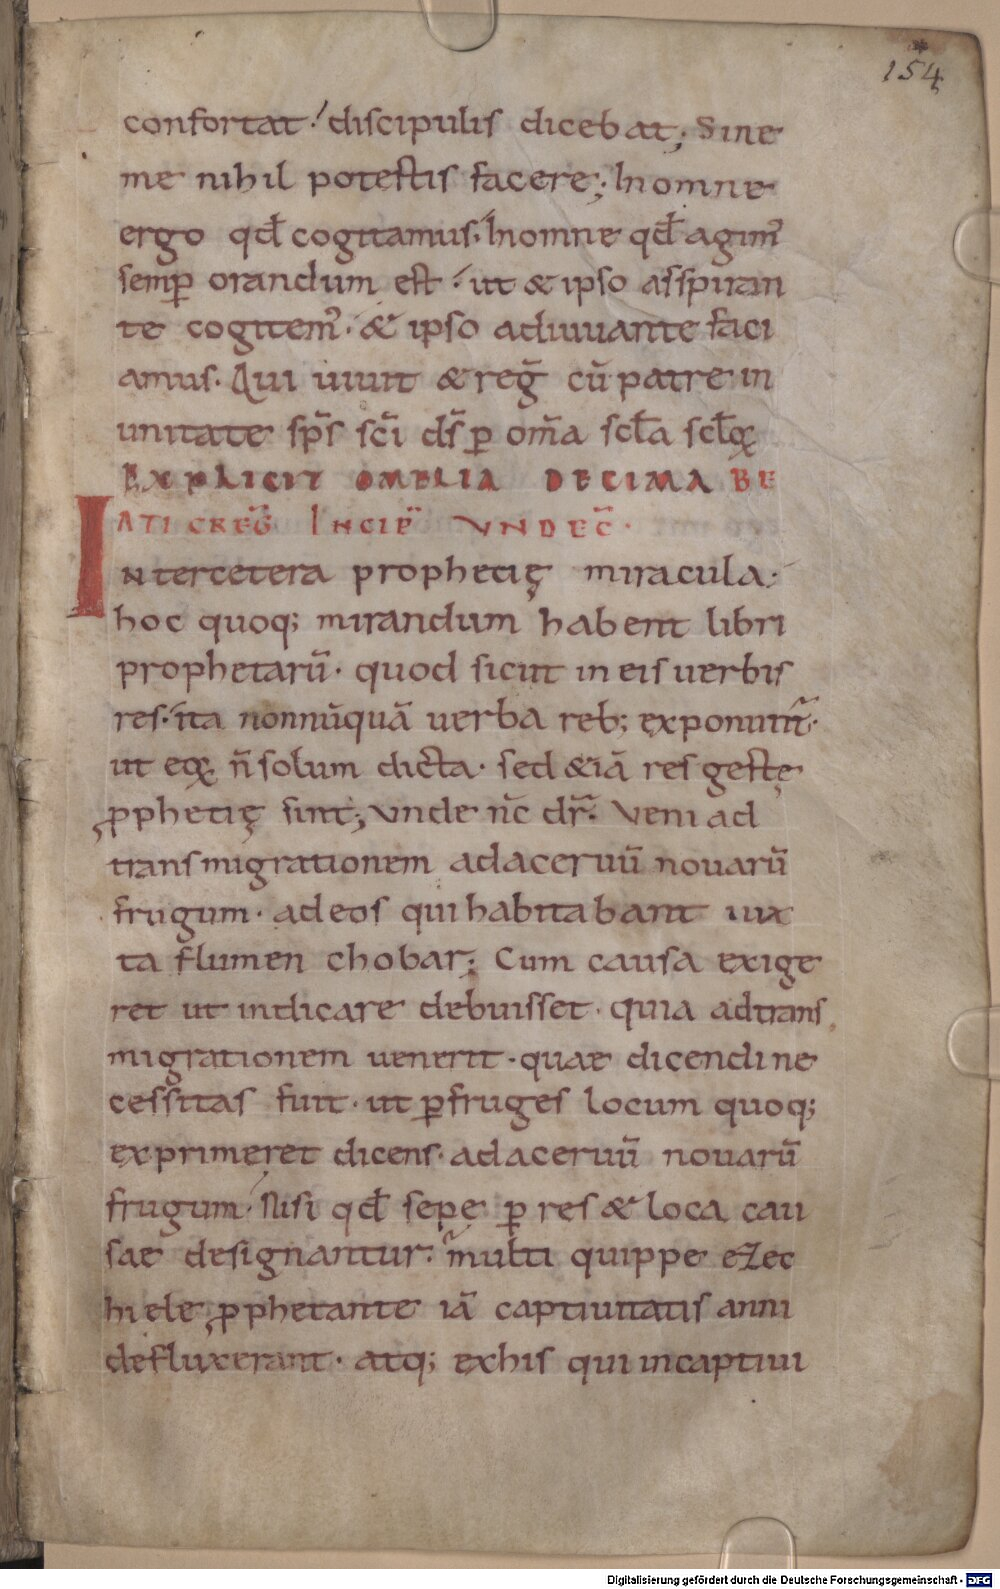 154
confortat. discipulis dicebat; Sine
me nihil potestis facere; Inomne
ergo qđ cogitamus. Inomne qđ agim᾽
semꝑ orandum est. ut & ipso asspiran
te cogitem᾽. & ipso adiuuante faci
amus. Qui uiuit & reḡ cū patre in
unitate sp̄s sc̄i ds̄ ꝑ om̄a scła scłoꝝ
EXPLICIT OMELIA DECIMA BE
ATI GREḠ INCIP̄ VNDEC̄.
Intercetera prophetię miracula.
hoc quoq; mirandum habent libri
prophetarū. quod sicut in eis uerbis
res. ita nonnūquā uerba reb; exponunt᷑.
ut eoꝝ n̄ solum dicta. sed &iā res gestę
ꝓphetię sint; Vnde nc̄ dr̄. Veni ad
transmigrationem adaceruū nouarū
frugum. ad eos qui habitabant iux
ta flumen chobar; Cum causa exige
ret ut indicare debuisset. quia adtrans
migrationem uenerit. quae dicendi ne
cessitas fuit. ut ꝑfruges locum quoq;
exprimeret dicens. adaceruū nouarū
frugum. Nisi qđ sepe ꝑ res & loca cau
sae designantur. multi quippe eZec
hiele ꝓphetante iā captiuitatis anni
defluxerant. atq; exhis qui incaptiui
Digitalisierung gefördert durch die Deutsche Forschungsgemeinschaft - DFG